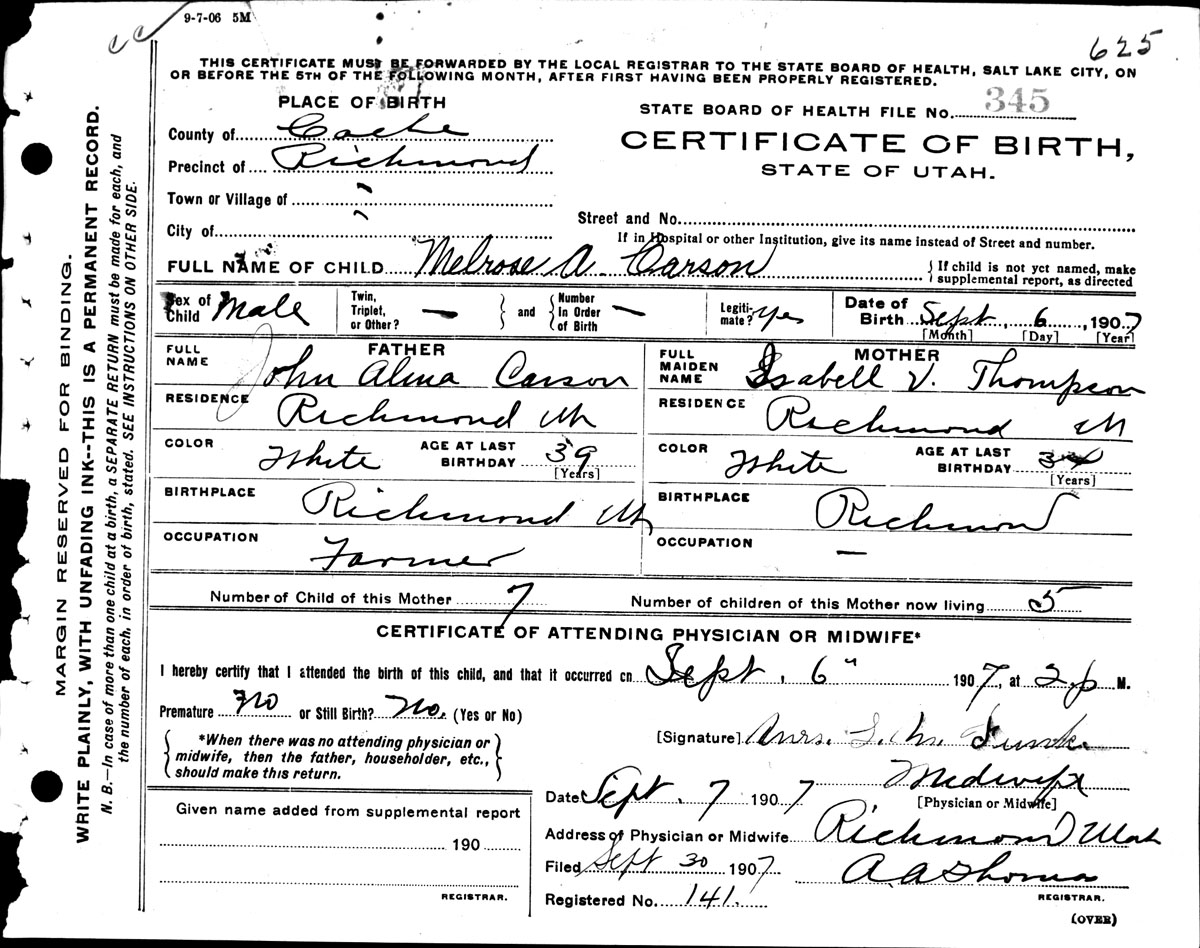 9-7-06 5M
625
THIS CERTIFICATE MUST BE FORWARDED BY THE LOCAL REGISTRAR TO THE STATE BOARD OF HEALTH, SALT LAKE CITY, ON
OR BEFORE THE 5TH OF THE FOLLOWING MONTH, AFTER FIRST HAVING BEEN PROPERLY REGISTERED.
PLACE OF BIRTH
STATE BOARD OF HEALTH FILE No. 345
County of Cache
CERTIFICATE OF BIRTH,
Precinct of Richmond
STATE OF UTAH.
Town or Village of "
Street and No.
City of "
If in Hospital or other Institution, give its name instead of Street and number.
FULL NAME OF CHILD Melrose A Carson { If child is not yet named, make supplemental report, as directed
Sex of Child Male Twin, Triplet, or Other? — and Number In Order of Birth — Legitimate? Yes Date of Birth Sept 6, 1907
[Month] [Day] [Year]
FATHER
MOTHER
FULL NAME John Alma Carson
FULL MAIDEN NAME Isabell V. Thompson
RESIDENCE Richmond Ut
RESIDENCE Richmond Ut
COLOR White AGE AT LAST BIRTHDAY 39 [Years]
COLOR White AGE AT LAST BIRTHDAY [Years]
BIRTHPLACE Richmond Ut
BIRTHPLACE Richmond
OCCUPATION Farmer
OCCUPATION —
Number of Child of this Mother 7 Number of children of this Mother now living 5
CERTIFICATE OF ATTENDING PHYSICIAN OR MIDWIFE*
I hereby certify that I attended the birth of this child, and that it occurred on Sept. 6" 1907, at 2 p M.
Premature No or Still Birth? No. (Yes or No)
*When there was no attending physician or
midwife, then the father, householder, etc.,
should make this return.
[Signature] Mrs.
Midwife
[Physician or Midwife]
Date Sept. 7 1907
Address of Physician or Midwife Richmond Utah
Filed Sept 30 1907 A. A. Thomas
REGISTRAR.
Registered No. 141.
(OVER)
Given name added from supplemental report
190
REGISTRAR.
MARGIN RESERVED FOR BINDING.
WRITE PLAINLY, WITH UNFADING INK--THIS IS A PERMANENT RECORD.
N. B.—In case of more than one child at a birth, a SEPARATE RETURN must be made for each, and
the number of each, in order of birth, stated. SEE INSTRUCTIONS ON OTHER SIDE.